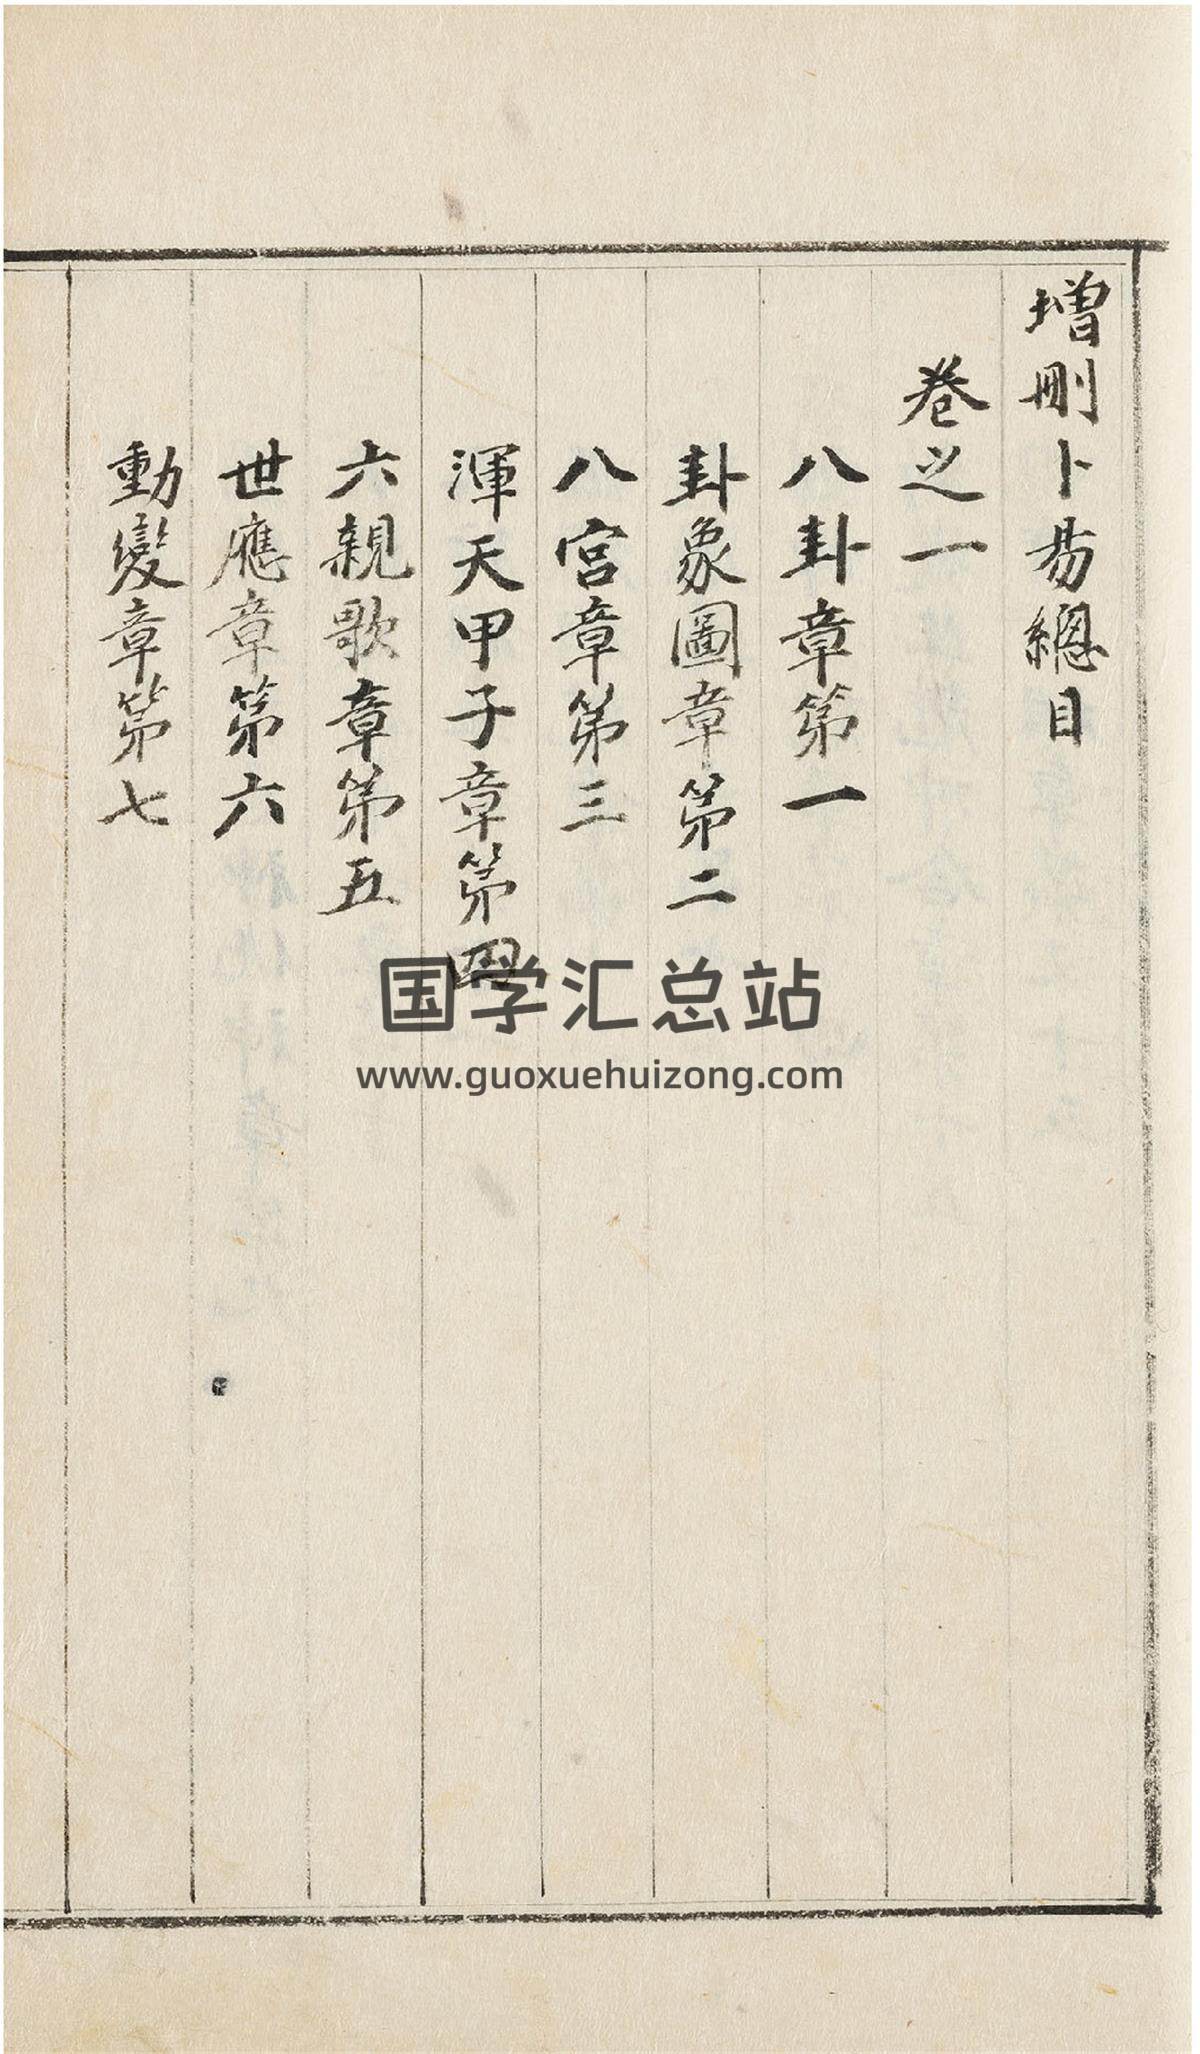 增刪卜易總目
卷之一
八卦章第一
卦象圖章第二
八宮章第三
渾天甲子章第四
六親歌章第五
世應章第六
動變章第七
国学汇总站
www.guoxuehuizong.com